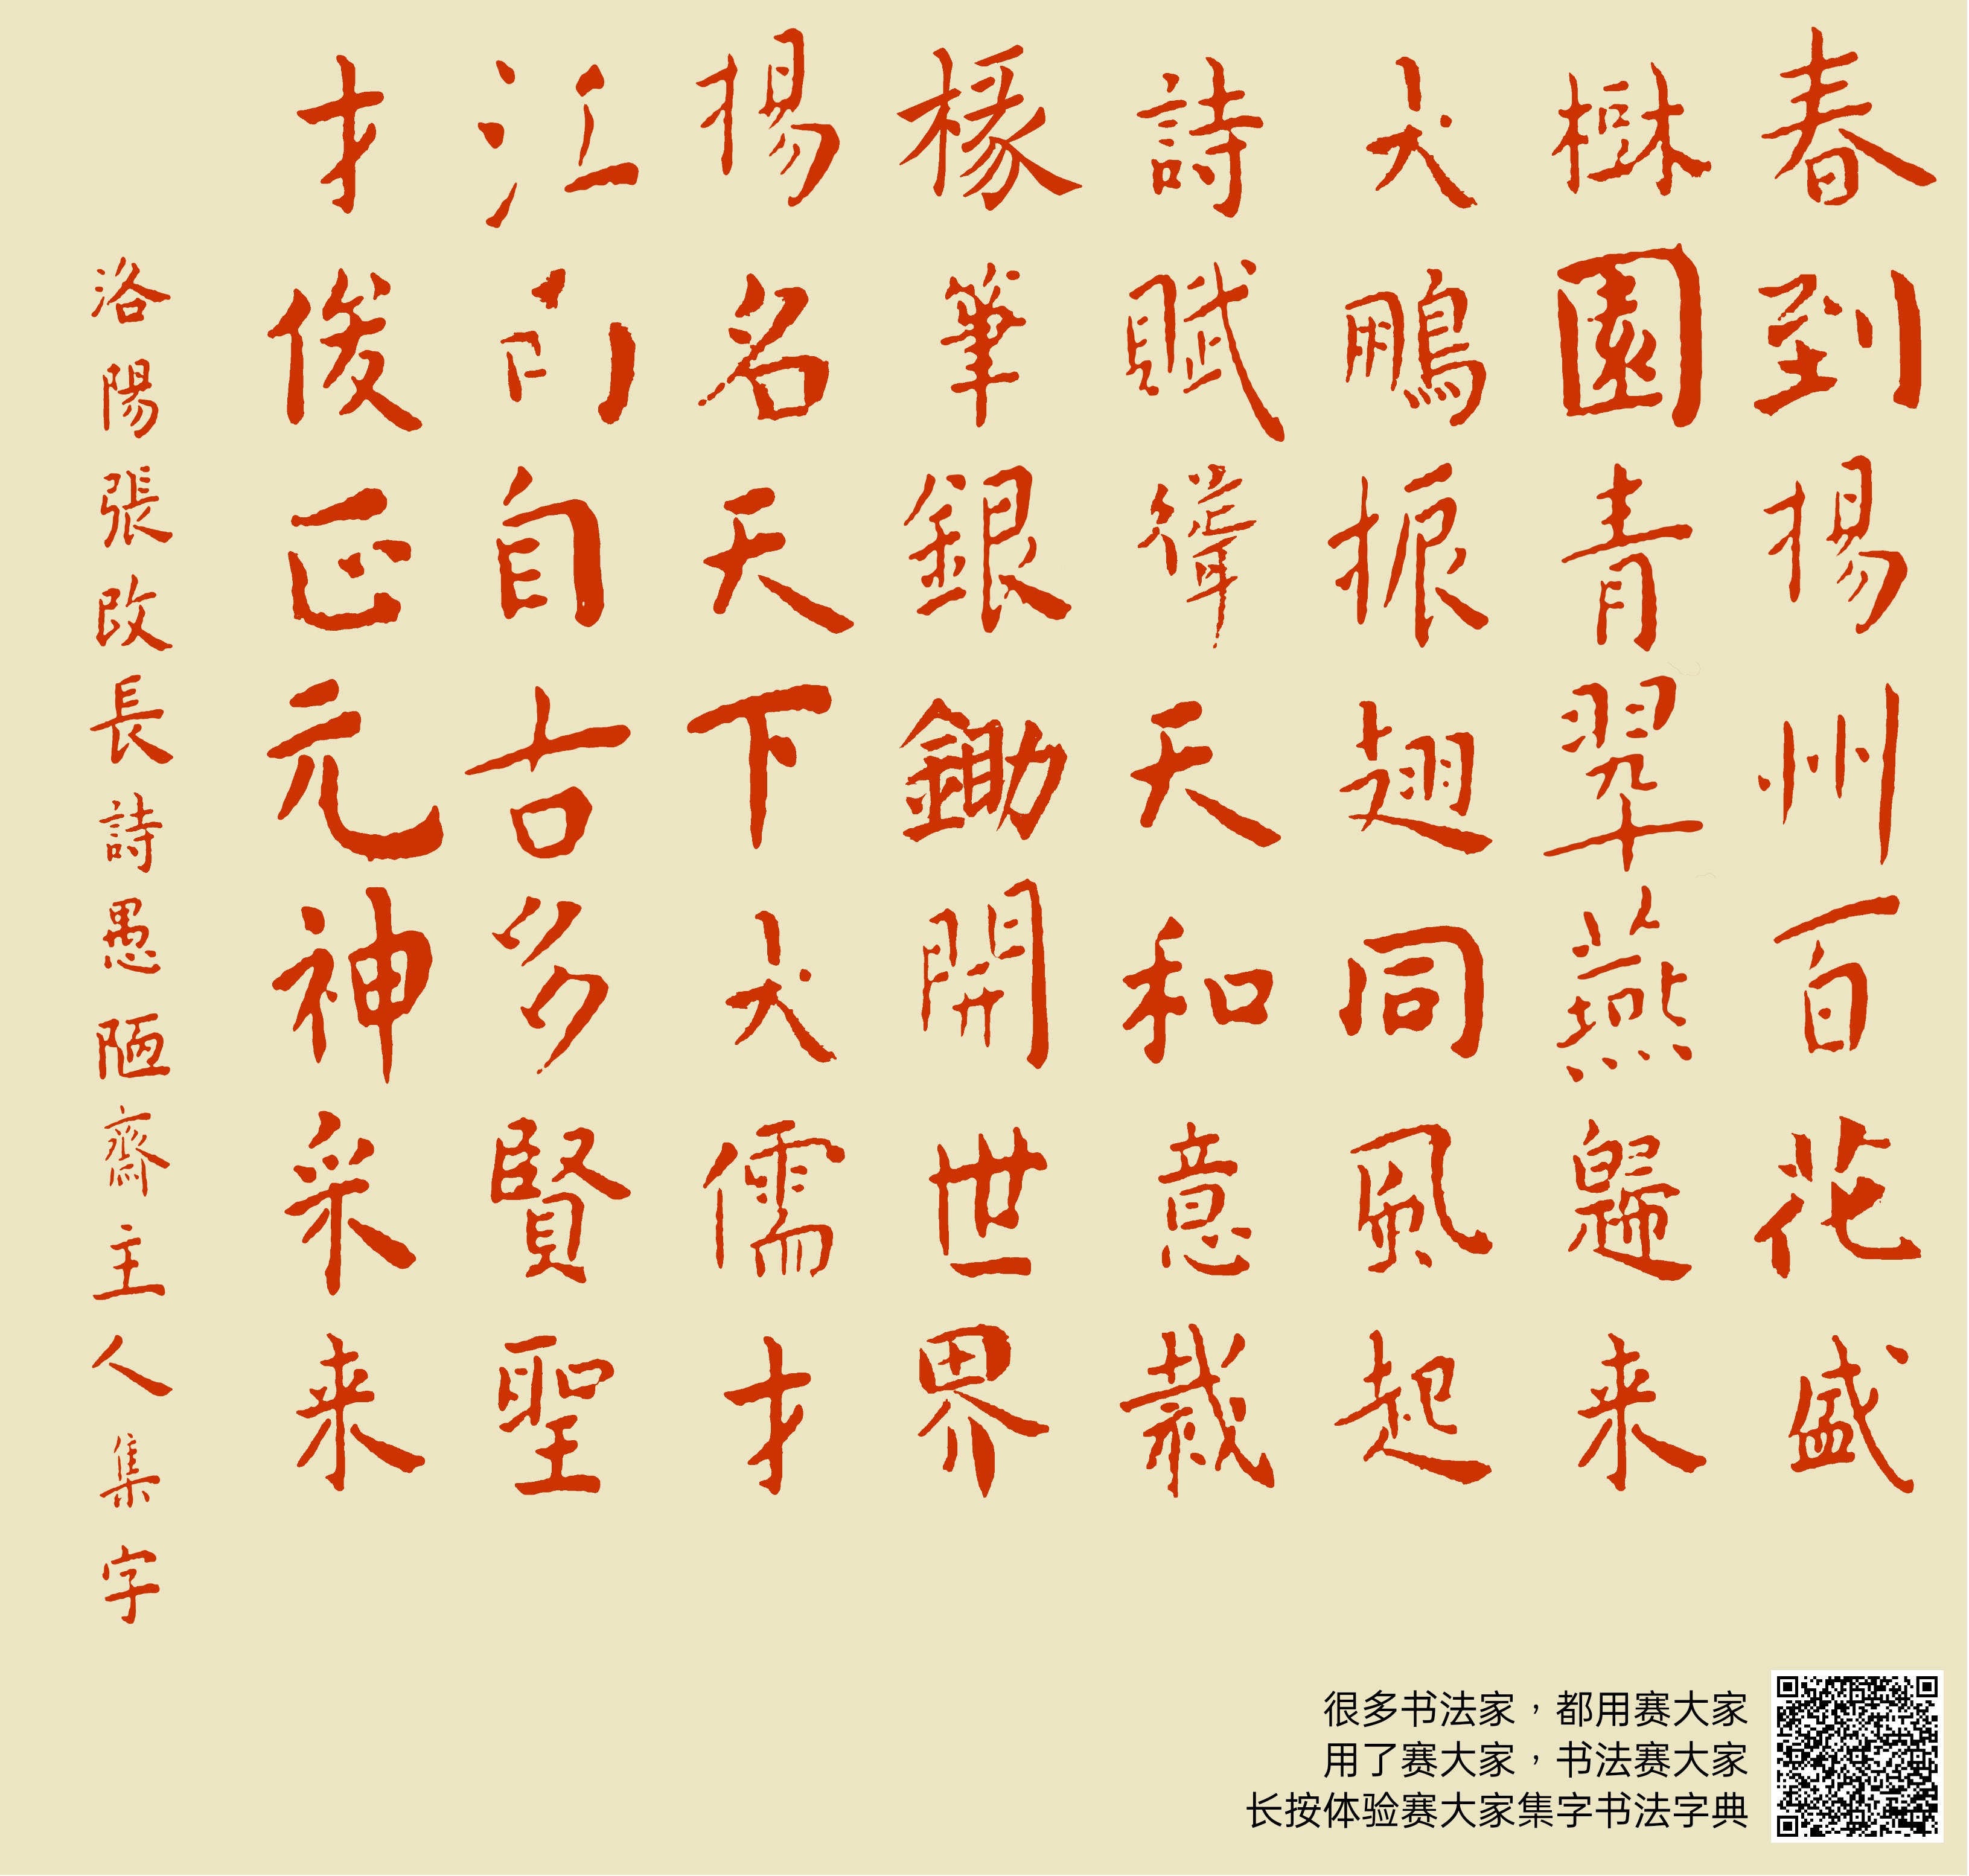 春到揚州百花盛
樹園青翠燕歸来
大鵬振翅同風起
詩賦緯天和意栽
椽筆銀鋤開世界
揚名天下大儒才
江門自古多賢聖
才俊正元神采来
洛陽張改長詩愚陋齋主人集字
很多书法家，都用赛大家
用了赛大家，书法赛大家
长按体验赛大家集字书法字典